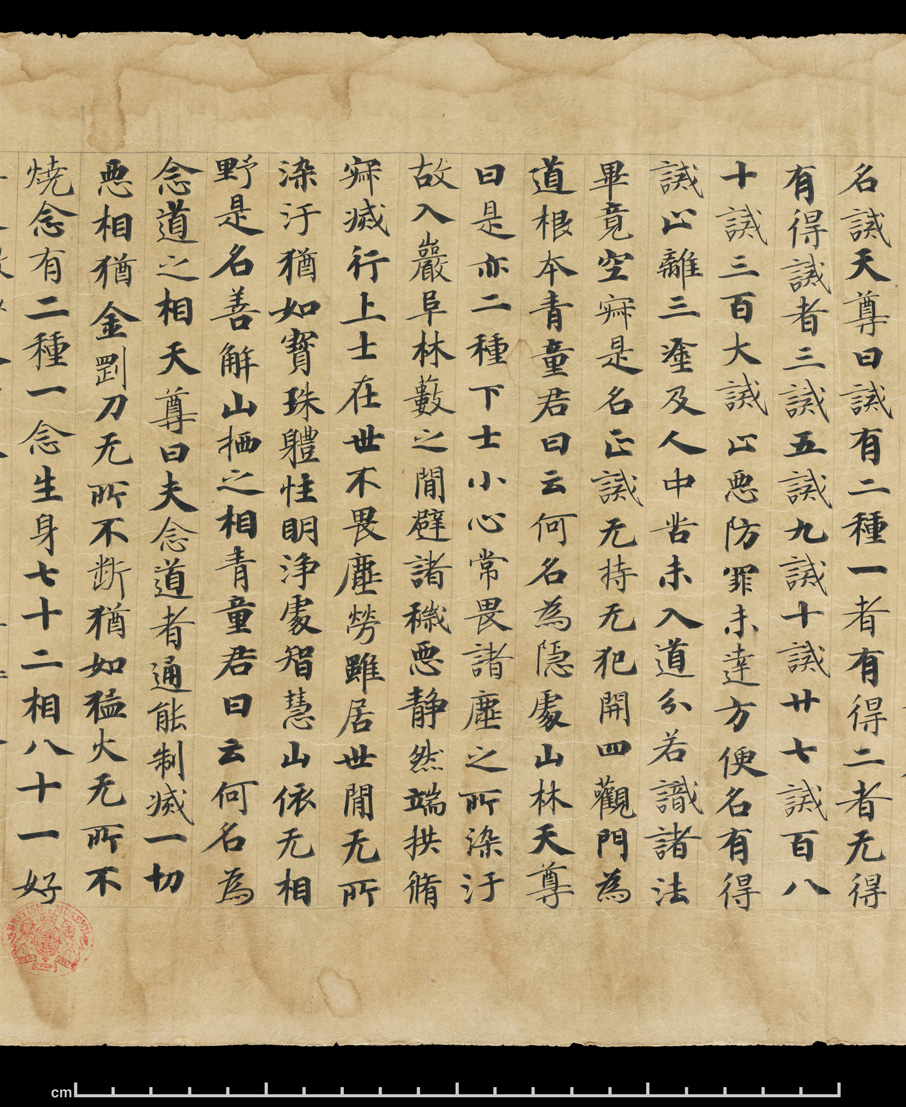 名誡天尊曰誡有二種一者有得二者无得
有得誡者三誡五誡九誡十誡廿七誡百八
十誡三百大誡止惡防罪未達方便名有得
誡止離三塗及人中苦未入道分若識諸法
畢竟空寂是名正誡无持无犯開四觀門為
道根本青童君曰云何名為隱處山林天尊
曰是亦二種下士小心常畏諸塵之所染汙
故入巖阜林藪之間避諸穢惡静然端拱脩
寂滅行上士在世不畏塵勞雖居世間无所
染汙猶如寶珠軆性明浄處智慧山依无相
野是名善解山栖之相青童君曰云何名為
念道之相天尊曰夫念道者通能制滅一切
惡相猶金剛刀无所不断猶如猛火无所不
燒念有二種一念生身七十二相八十一好
cm